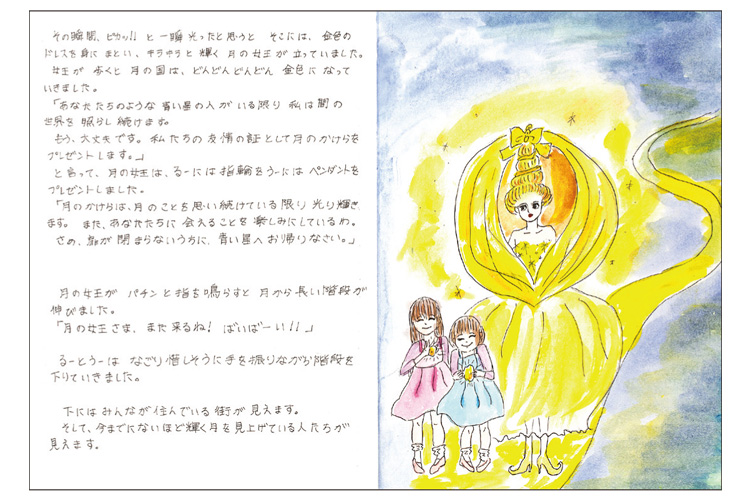 その瞬間、ピカッ!! と一瞬 光ったと思うと そこには、金色の
ドレスを身に まとい、キラキラと 輝く 月の女王が 立っていました。
女王が 歩くと 月の国は、どんどんどんどん 金色に なって
いきました。
「あなたたちのような 青い星の人が いる限り 私は闇の
世界を 照らし 続けます。
もう、大丈夫です。私たちの 友情の証として月のかけらを
プレゼントします。」
と言って、月の女王は、るーには 指輪を うーには ペンダントを
プレゼントしました。
「月のかけらは、月のことを思い続けている限り 光り輝き
ます。 また、あなたたちに 会えることを 楽しみにしているわ。
さぁ、影が 閉まらないうちに、青い星へ お帰りなさい。」
月の女王が パチンと 指を 鳴らすと 月から 長い階段が
伸びました。
「月の女王さま、また 来るね! ばいばーい!!」
るーとうーは なごり惜しそうに 手を振りながら階段を
下りていきました。
下には みんなが 住んでいる 街が 見えます。
そして、今までにないほど 輝く月を 見上げている人たちが
見えます。